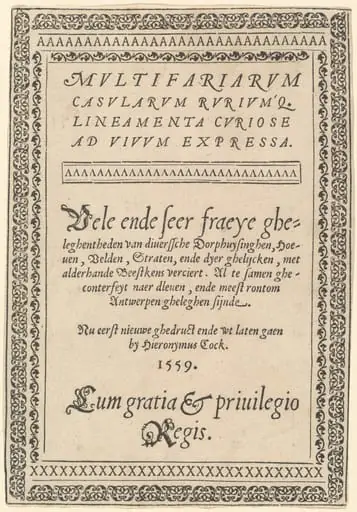 AAAAAAAAAAAAAAAAAAAAAAAAAAAAA
MVLTIFARIARVM
CASVLARVM RVRIVMQ́.
LINEAMENTA CVRIOSE
AD VIVVM EXPRESSA.
ΛΛΛΛΛΛΛΛΛΛΛΛΛΛΛΛΛΛΛΛΛΛΛΛΛ
Vele ende seer fraeye ghe-
leghentheden van diuerssche Dorphuysinghen, Hoe-
uen, Velden, Straten, ende dyer ghelijcken, met
alderhande Beestkens verciert. Al te samen ghe-
conterfeyt naer dleuen, ende meest rontom
Antwerpen gheleghen sijnde.
Nu eerst nieuwe ghedruct ende wt laten gaen
by Hieronymus Cock.
1559.
Cum gratia & priuilegio
Regis.
XXXXXXXXXXXXXXXXXXXXXXXXXXXXX